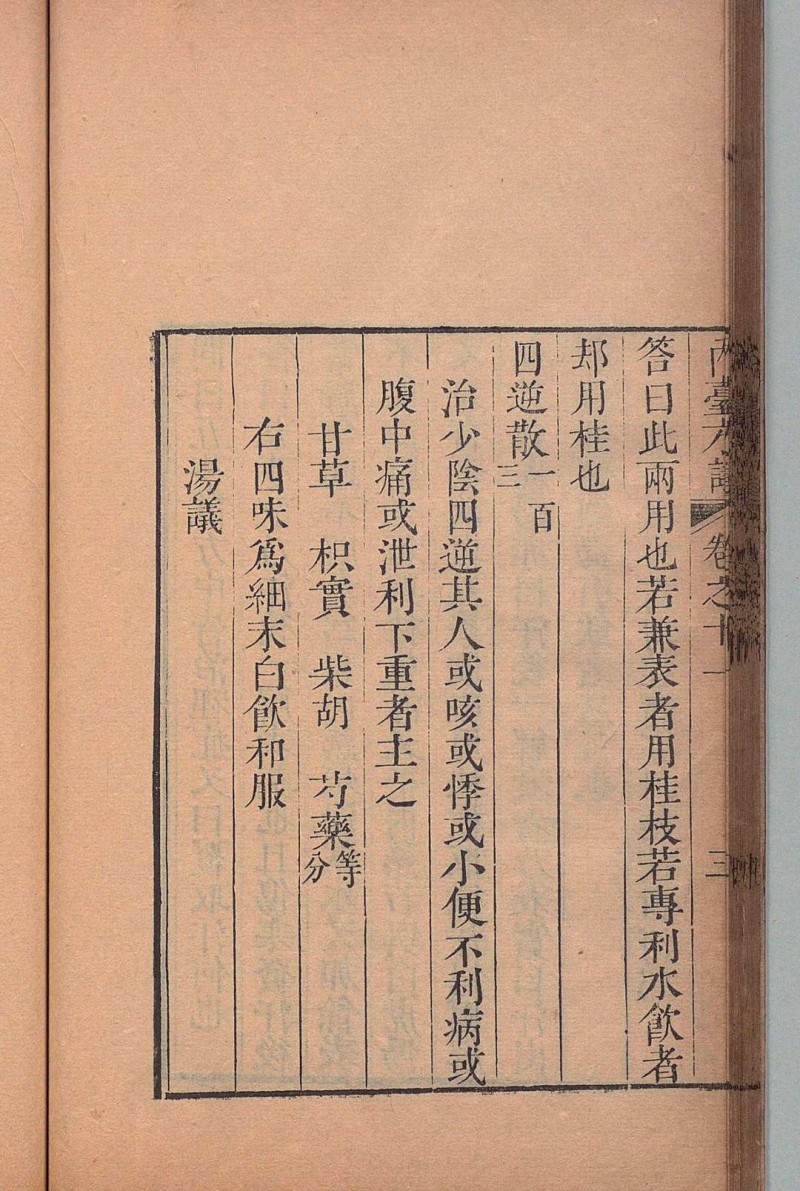 內臺方議 卷之十一 三
答曰此兩用也若兼表者用桂枝若專利水飲者
却用桂也
四逆散一百三
治少陰四逆其人或咳或悸或小便不利病或
腹中痛或泄利下重者主之
甘草 枳實 柴胡 芍藥等分
右四味爲細末白飲和服
湯議